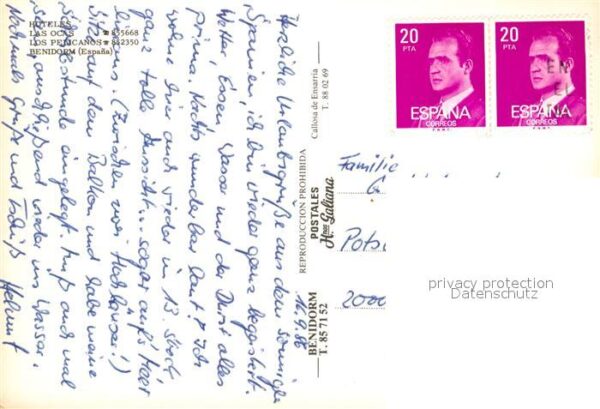 HOTELES
LAS OCAS ☎ 855668
LOS PELICANOS ☎ 852350
BENIDORM (España)
16.9.86
Herzliche Urlaubsgrüße aus dem sonnigen
Spanien, ich bin wieder ganz begeistert.
Wetter, Essen, Wasser und der Durst alles
prima. Nachts wunderbar laut! Ich
wohne wieder im 13. Stock
ganz tolle Aussicht... sogar auf's Meer
(Zwischen zwei Hochhäuser!)
Sitz auf dem Balkon und habe meine
eingelegt. Muß auch mal
sein, anschließend wieder ins Wasser.
Nochmals Grüße und Tschüß Helmut
BENIDORM
T. 85 71 52
POSTALES
Hnos Galiana
REPRODUCCION PROHIBIDA
Callosa de Ensarria
T. 88 02 69
20
PTA
ESPAÑA
CORREOS
20
PTA
ESPAÑA
CORREOS
Familie
G
Pots
2000
privacy protection
Datenschutz